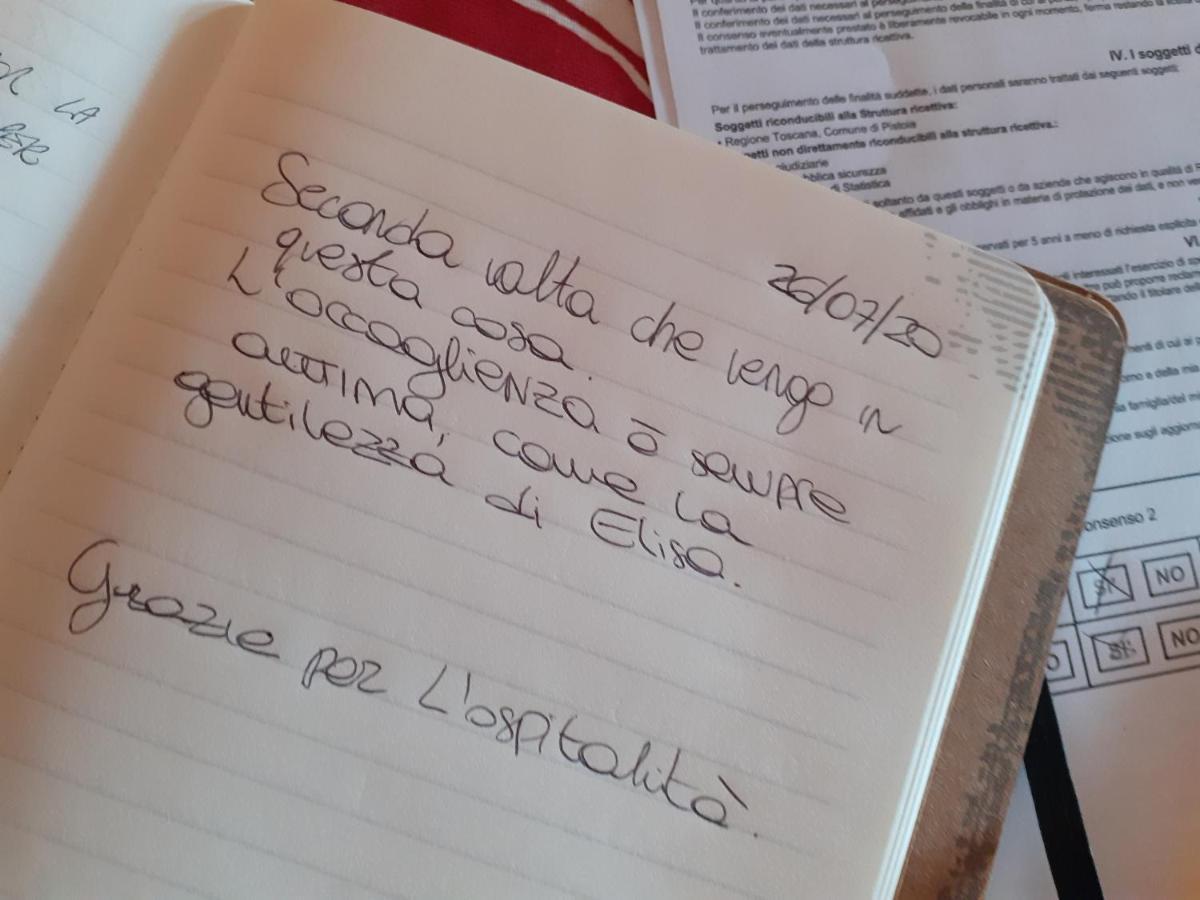 OR LA
PER
26/07/20
Seconda volta che vengo in
questa cosa.
L'accoglienza è sempre
ottima, come la
gentilezza di Elisa.
Grazie per L'ospitalità.
Il conferimento dei dati necessari al perseguimento della finalità di cui ai
Il consenso eventualmente prestato è liberamente revocabile in ogni momento, ferma restando la
trattamento dei dati della struttura ricettiva.
IV. I soggetti d
Per il perseguimento delle finalità suddette, i dati personali saranno trattati dai seguenti soggetti:
Soggetti riconducibili alla Struttura ricettiva:
• Regione Toscana, Comune di Pistoia
getti non direttamente riconducibili alla struttura ricettiva.:
giudiziarie
bblica sicurezza
di Statistica
soltanto da questi soggetti o da aziende che agiscono in qualità di R
affidati e gli obblighi in materia di protezione dei dati, e non
ervati per 5 anni a meno di richiesta esplicita
VI
interessati l'esercizio di
può proporre
tando il titolare del
menti di cui ai
orno e della mia
famiglia/del
zione sugli
onsenso 2
SI NO
O SI NO